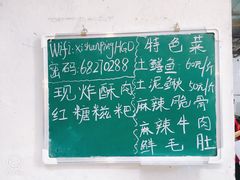 Wifi: xishunpingHGD
密码: 68270288
现炸酥肉
红糖糍粑
特色菜
土鳝鱼 60元/斤
土泥鳅 50元/斤
麻辣脆骨
麻辣牛肉
鲜毛肚